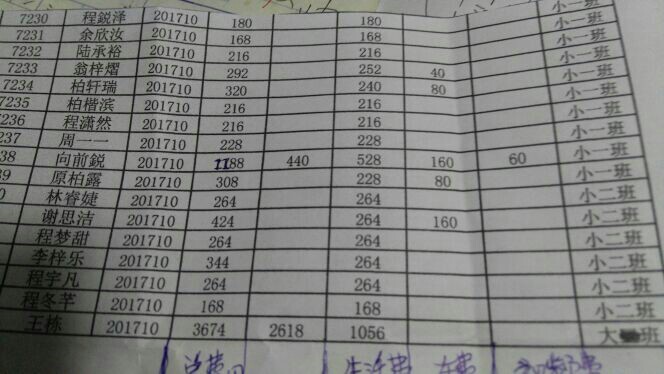 7230 程鋭泽 201710 180 180 小一班
7231 余欣汝 201710 168 168 小一班
7232 陆承裕 201710 216 216 小一班
7233 翁梓熠 201710 292 252 40 小一班
7234 柏轩瑞 201710 320 240 80 小一班
7235 柏楷滨 201710 216 216 小一班
236 程潇然 201710 216 216 小一班
237 周一一 201710 228 228 小一班
38 向前鋭 201710 1188 440 528 160 60 小一班
39 原柏露 201710 308 228 80 小一班
0 林睿婕 201710 264 264 小二班
谢思洁 201710 424 264 160 小二班
程梦甜 201710 264 264 小二班
李梓乐 201710 344 264 小二班
程宇凡 201710 264 264 小二班
程冬芊 201710 168 168 小二班
王栋 201710 3674 2618 1056 大班
生活费